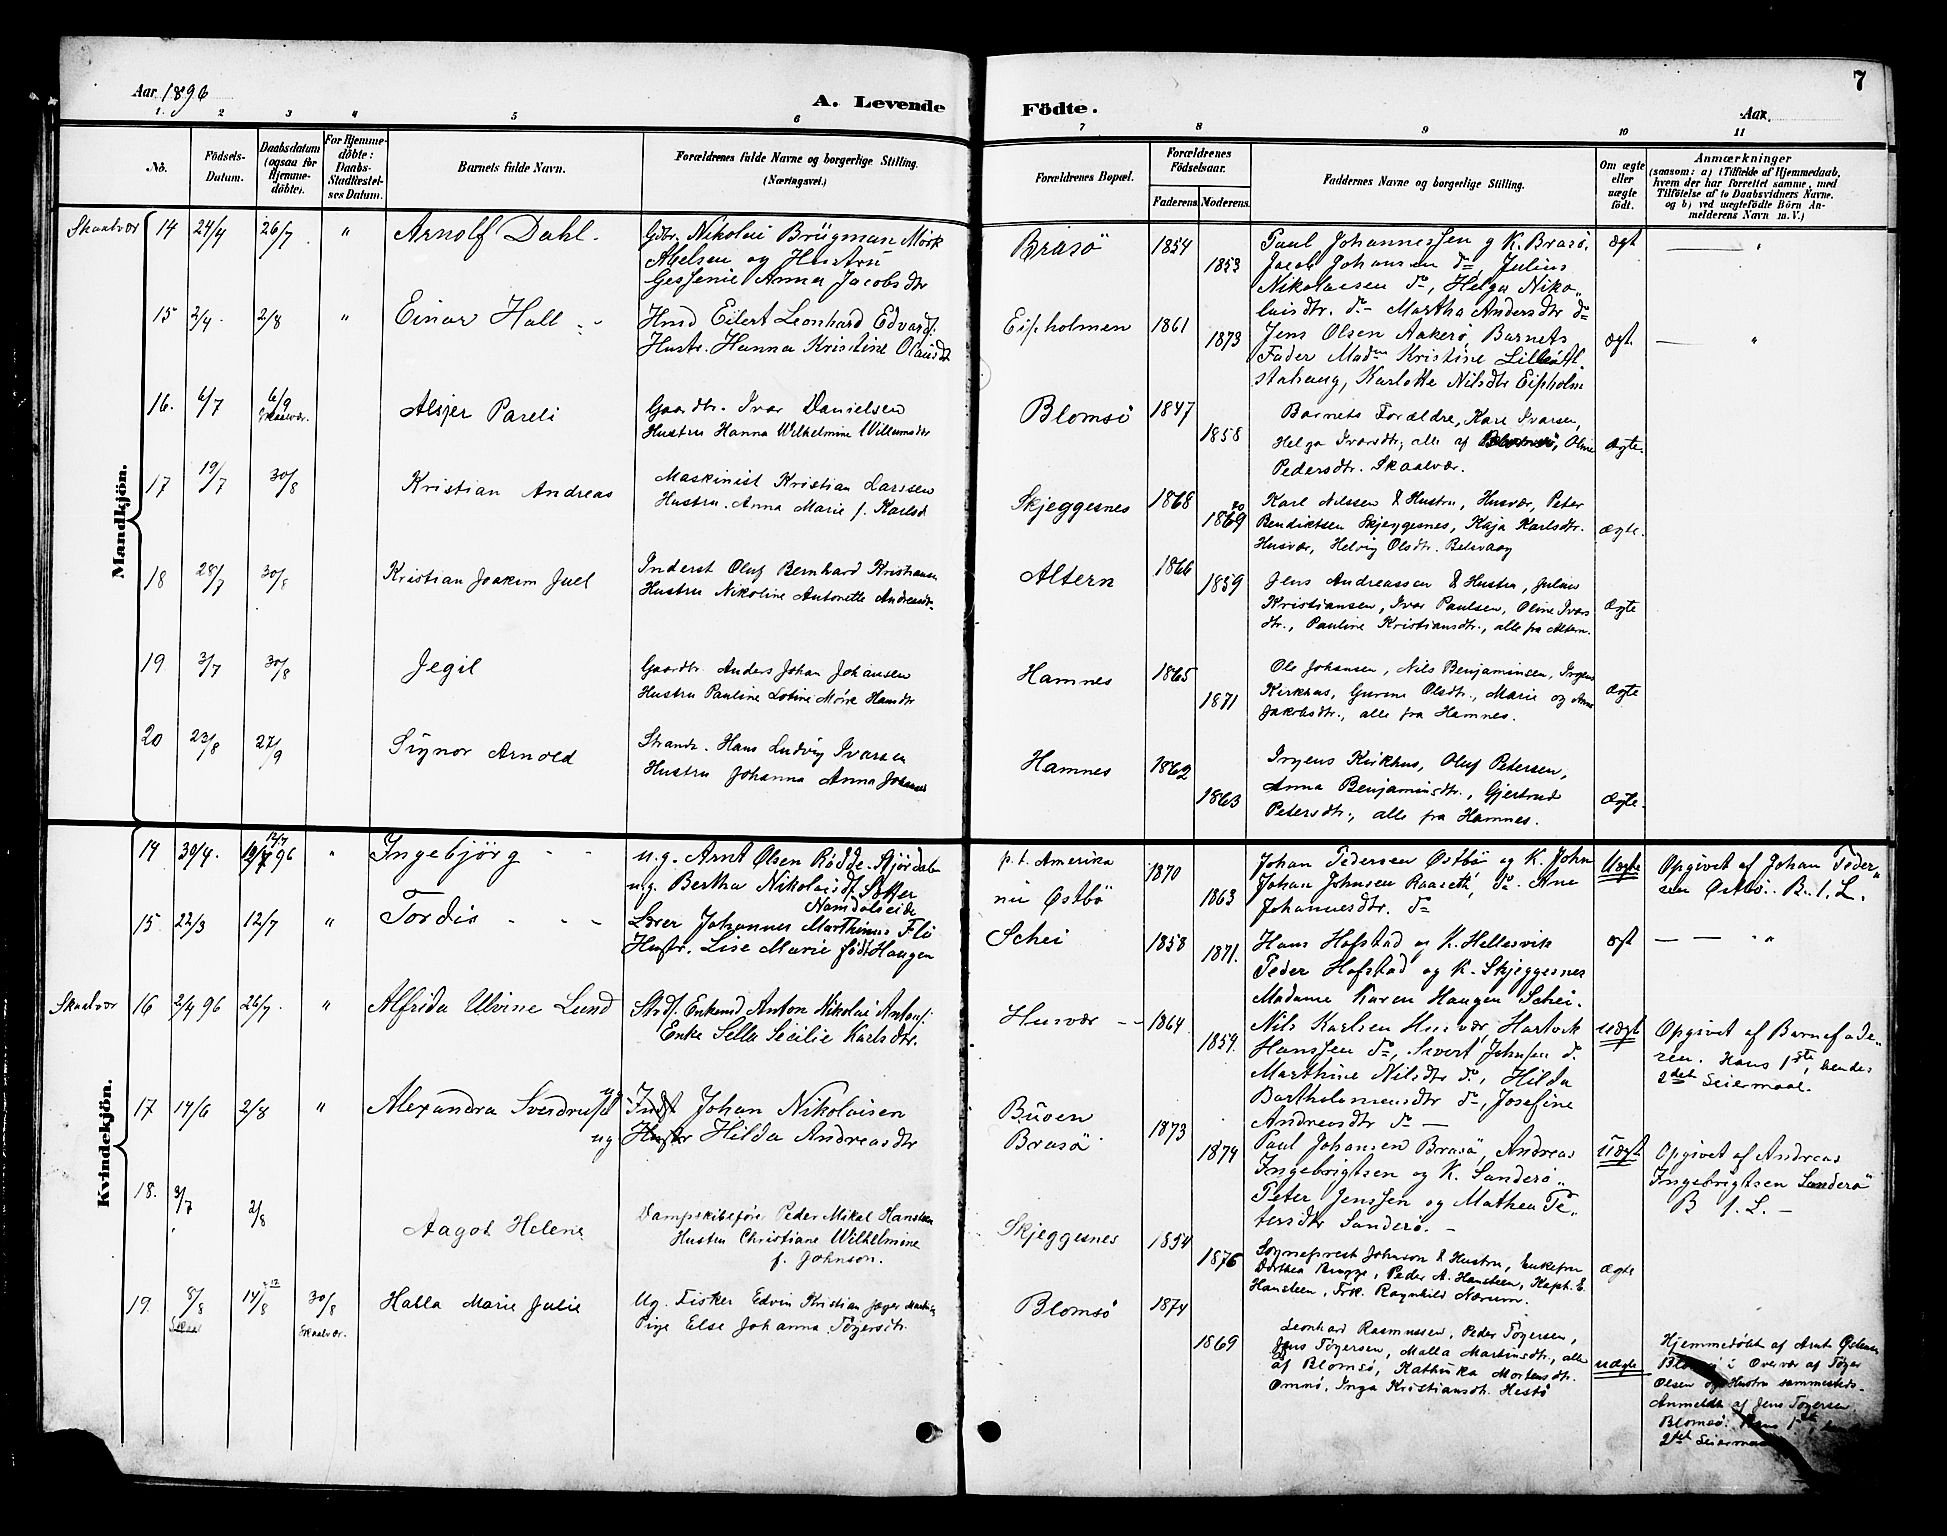 Aar 1896
A. Levende
Födte.
Aar.
7
1. 2 3 4 5 6 7 8 9 10 11
No.
Födsels-Datum.
Daabsdatum (ogsaa for Hjemme-döbte).
For Hjemme-döbte: Daabs-Stadfæstel-ses Datum.
Barnets fulde Navn.
Forældrenes fulde Navne og borgerlige Stilling. (Næringsvei.)
Forældrenes Bopæl.
Forældrenes Födselsaar.
Faderens. Moderens.
Faddernes Navne og borgerlige Stilling.
Om ægte eller uægte födt.
Anmærkninger
(saasom: a) i Tilfælde af Hjemmedaab,
hvem der har forrettet samme, med
Tilföielse af to Daabsvidners Navne.
og b) ved uægtefödte Börn An-
melderens Navn m. V.)
Mandkjön.
Skaalvær 14 24/4 26/7 " Arnolf Dahl.
Gdbr. Nikolai Brügman Mörk
Abelsen og Hustru
Gessenie Anna Jacobsdtr
Brasö 1854 1853
Paul Johannessen g K. Brasö,
Jacob Johansen do, Julius
Nikolaisen do, Helga Niko„
laisdtr. do Martha Andersdtr do
ægt
15 2/4. 2/8 " Einar Hall
Hmd Eilert Leonhard Edvards.
Hustr. Hanna Kristine Olaisdtr
Eipholmen 1861 1873
Jens Olsen Aakerö, Barnets
Fader Madm Kristine
Karlotte Nilsdtr Eipholm
ægt.
16. 6/7 6/9 Skaalvær. Alsjer Pareli
Gaardbr. Ivar Danielsen
Hustru Hanna Wilhelmine Willumsdtr
Blomsö 1847 1858
Barnets Forældre, Kare Ivarsen,
Helga Ivarsdtr, alle af Blomsö, Oline
Pedersdtr. Skaalvær.
ægte.
17 19/7 30/8 Kristian Andreas
Maskinist Kristian Larssen
Hustru. Anna Marie f. Karlsd
Skjeggesnes 1868 1869
Karl Nilssen & Hustru, Husvær, Peter
Bendiktsen Skjeggesnes, Kaja Karlsdtr.
Husvær, Helvig Olsdtr. Belsvaag
ægte.
18 28/7 30/8 Kristian Joakim Juel
Inderst Oluf Bernhard Kristiansen
Hustru Nikoline Antonette Andreasdtr.
Altern 1866 1859
Jens Andreassen & Hustru, Julius
Kristiansen, Ivar Paulsen, Oline Ivars
dtr., Pauline Kristiansdtr., alle fra Altern.
ægte
19 3/7 30/8 Jegil
Gaardbr. Anders Johan Johansen
Hustru Pauline Lotine Mörk Hansdtr
Hamnes 1865 1871
Ole Johansen, Nils Benjaminsen, Ingens
Kirkhus, Gurine Olsdtr., Marie og Anne
Jakobsdtr., alle fra Hamnes.
ægte
20 23/8 27/9 Signor Arnold
Strands. Hans Ludvig Ivarsen
Hustru Johanna Anna Johansd
Hamnes 1862 1863
Ingens Kirkhus, Oluf Petersen,
Anna Benjaminsdtr., Gjertrud
Petersdtr., alle fra Hamnes.
ægte.
Kvindekjön.
14 30/4. 12/7 96 " Ingebjörg
u.g. Arnt Olsen Rödde. Stjördalen
ug. Bertha Nikolaisdtr
Namdalseide
p. t. Amerika
nu Østbö
1870 1863
Johan Pedersen Østbö og K. John
Johan Johnsen Raaseth, do. Ane
Johannesdtr. do
Uægte
Opgivet af Johan Peder„
sen Østbö. B. 1. L.
15. 22/3 12/7 " Tordis
Lærer Johannes Marthinus Fli
Hustr. Lise Marie født Haugen
Schei 1858 1871.
Hans Hofstad og K. Hellesvik
Peder Hofstad og K. Skjeggesnes
Madame Karen Haugen Schei.
ægt
Skaalvær 16 2/4 96 26/7. " Alfrida Ulvine Lund
Strds. Enkemd Anton Nikolai Antons.
Enke Sella Secilie Karlsdtr.
Husvær 1864. 1859.
Nils Karlsen Husvær, Hartvik
Hanssen do, Sivert Johnsen d.
Marthine Nilsdtr do, Hilda
Bartholomeusdtr do, Josefine
Andreasdtr do
uægt
Opgivet af Barnefade„
ren. Hans 1ste, hendes
2det Leiermaal.
17 14/6 2/8 " Alexandra Sverdrup
ug. Indst Johan Nikolaisen
ug Hustr Hilda Andreasdtr
Buöen
Brasö
1873 1874
Paul Johansen Brasö, Andreas
Ingebrigtsen og K. Sanderö.
Peter Jenssen og Mathea Pe„
tersdtr Sanderö.
Uægt
Opgivet af Andreas
Ingebrigtsen Sanderö
B 1. L.
18. 3/7 2/8 Aagot Helene
Dampskibsförer Peder Mikal Hansteen
Hustru Christiane Wilhelmine
f. Johnson.
Skjeggesnes 1854 1876
Sogneprest Johnson & Hustru, Enkefru
Dorthea Brugge, Peder A. Hansteen, Kapt. E.
Hansteen, Frk. Ragnhild Nærum.
ægte
19. 8/8 Skaal 14/8 30/8 Skaalvær. Halla Marie Julie
Ug. Fisker Edvin Kristian Jæger
Pige Else Johanna Tögersdtr.
Blomsö 1874 1869
Leonhard Rasmussen, Peder Tögersen,
Jens Tögersen, Malla Martinsdtr., alle
af Blomsö, Kathinka Mortensdtr.
Omnö, Inga Kristiansdtr. Hestö
uægte
Hjemmedöbt af Arnt Östensen
Blomsö i Overvær af Töger
Olsen og Hustru sammesteds.
Anmeldt af Jens Tögersen
Blomsö. Hans 1ste,
2det Leiermaal